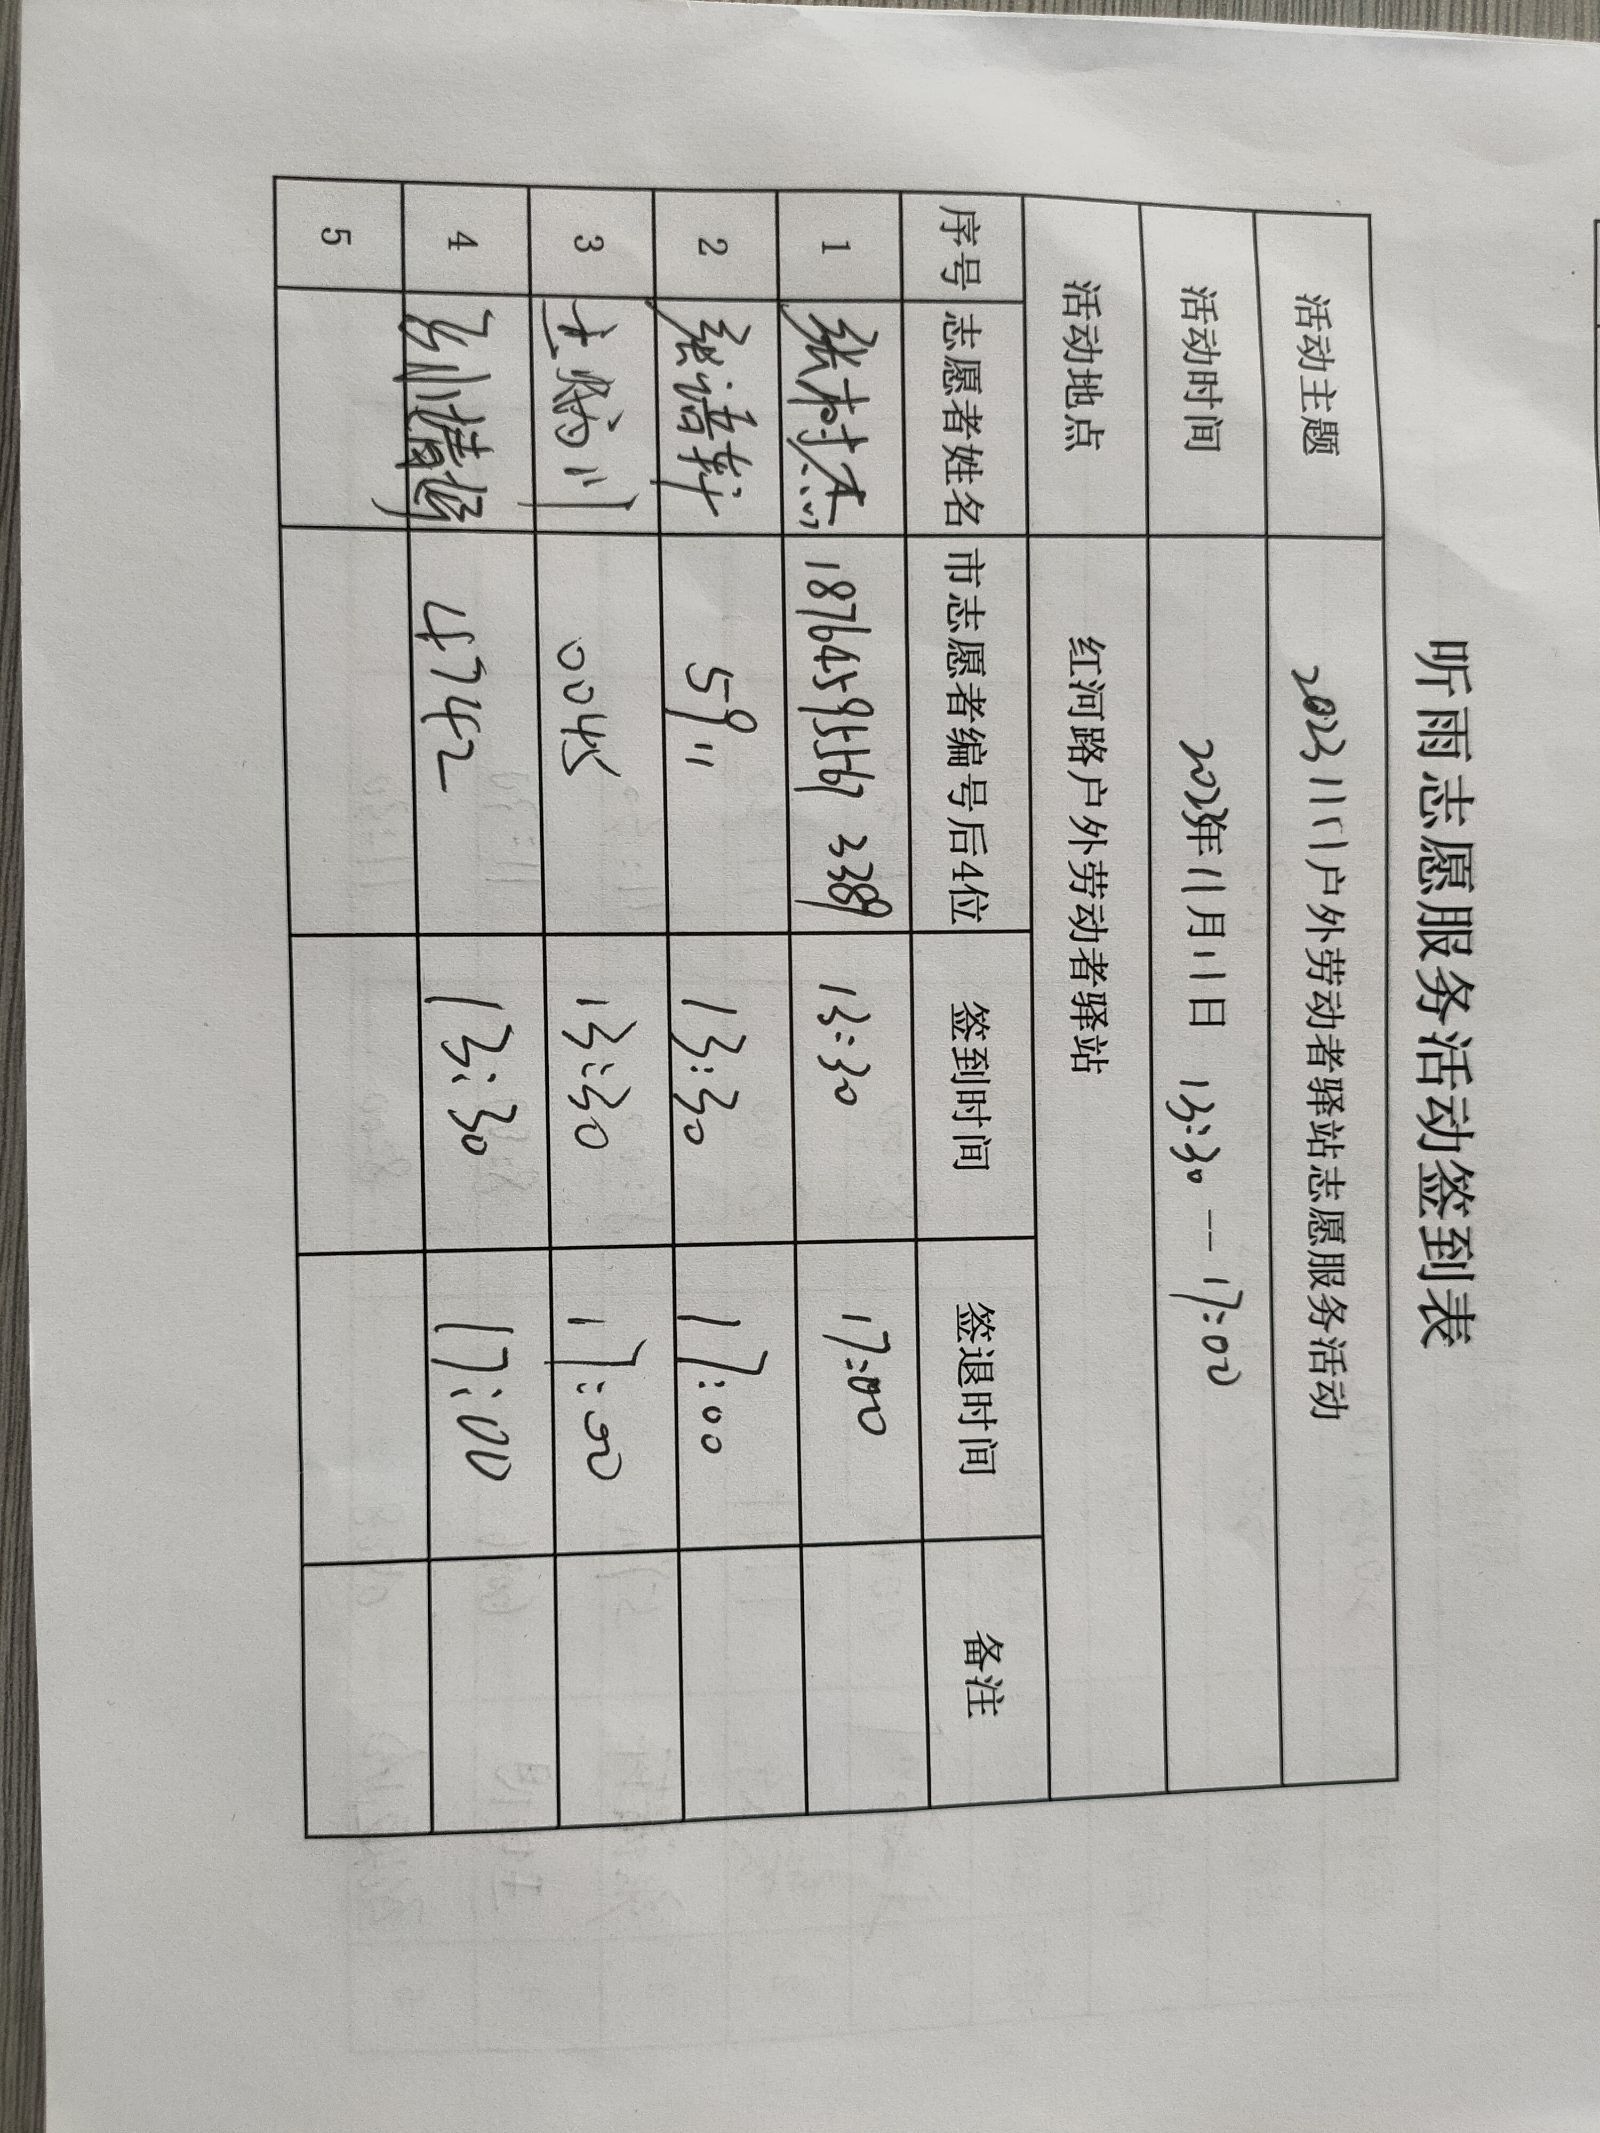 听雨志愿服务活动签到表
活动主题 20231111户外劳动者驿站志愿服务活动
活动时间 2023年11月11日 13:30--17:00
活动地点 红河路户外劳动者驿站
序号 志愿者姓名 市志愿者编号后4位 签到时间 签退时间 备注
1 张树杰 18764595567 3389 13:30 17:00
2 张语轩 5911 13:30 17:00
3 0045 13:30 17:00
4 4742 13:30 17:00
5